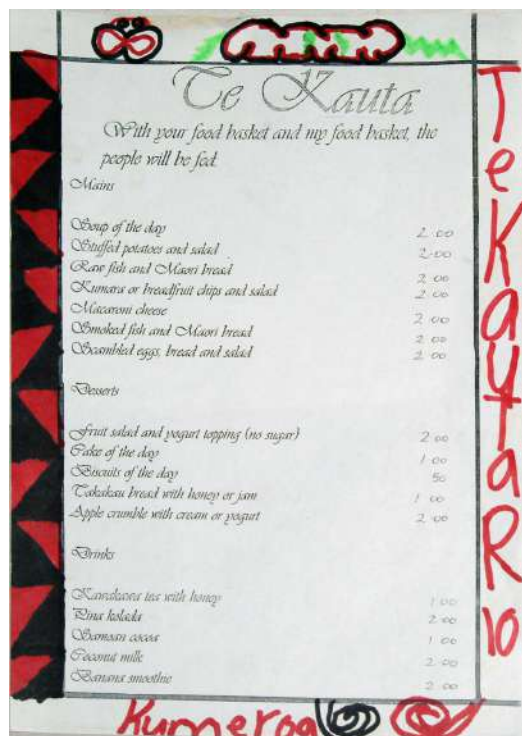 Te Kauta
17
With your food basket and my food basket, the
people will be fed.
Mains
Soup of the day 2.00
Stuffed potatoes and salad 2.00
Raw fish and Maori bread 2.00
Kumara or breadfruit chips and salad 2.00
Macaroni cheese 2.00
Smoked fish and Maori bread 2.00
Scambled eggs, bread and salad 2.00
Desserts
Fruit salad and yogurt topping (no sugar) 2.00
Cake of the day 1.00
Biscuits of the day 50
Takakau bread with honey or jam 1.00
Apple crumble with cream or yogurt 2.00
Drinks
Kawakawa tea with honey 1.00
Pina kolada 2.00
Samoan cocoa 1.00
Coconut milk 2.00
Banana smoothie 2.00
TeKautaR10